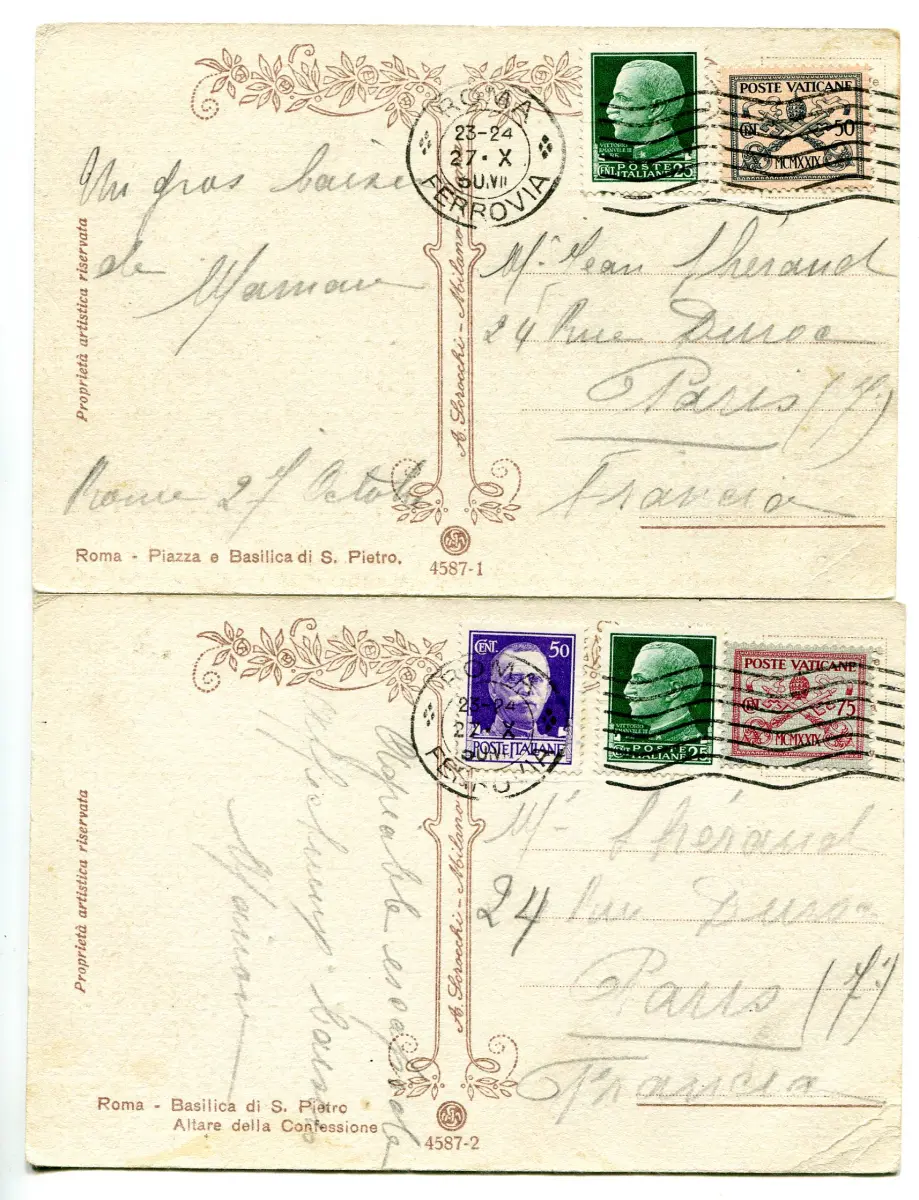 ROMA
23-24
27·X
FERROVIA
VITTORIO
EMANUELE III
RE
POSTE
CENT. ITALIANE 25
POSTE VATICANE
CENT. 50
MCMXXIX
Un gros baiser
de Maman
Rome 27 Octobre
Mr. Jean Théraud
24 Rue Duroc
Paris (7e)
Francia
Proprietà artistica riservata
A. Scrocchi - Milano
Roma - Piazza e Basilica di S. Pietro.
4587-1
ROMA
23-24
27 X
FERROVIA
CENT. 50
POSTE ITALIANE
VITTORIO
EMANUELE III
RE
POSTE
CENT. ITALIANE 25
POSTE VATICANE
CENT. 75
MCMXXIX
Agréable escapade
Maman
Théraud
24 Rue Duroc
Paris (7e)
Francia
Proprietà artistica riservata
A. Scrocchi - Milano
Roma - Basilica di S. Pietro
Altare della Confessione
4587-2